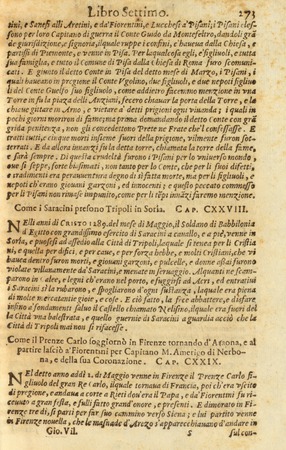 Libro Settimo. 273
tini, e Sanesi alli Aretini, e da' Fiorentini, e Lucchesi a' Pisani, i Pisani eles-
sono per loro Capitano di guerra il Conte Guido da Montefeltro, dandoli grã-
de giurisdizione, e signoria, il quale ruppe i confini, c'haueua dalla Chiesa, e
partissi di Piemonte, e venne in Pisa. Per la qual cosa egli, e figliuoli, e tutta
sua famiglia, e tutto il Comune di Pisa dalla chiesa di Roma furo scomuni-
cati. E giunto il detto Conte in Pisa del detto mese di Marzo, i Pisani, i
quali haueano in prigione il Conte Vgolino, due figliuoli, e due nepoti figliuo
li del Conte Guelfo suo figliuolo, come addietro facemmo menzione in vna
Torre in su la piazza delli Anziani, fecero chiauar la porta della Torre, e la
chiaue gittare in Arno, e vietare a' detti prigioni ogni viuanda; i quali in
pochi giorni morirono di fame; ma prima domandando il detto Conte con grã
grida penitenza, non gli concedettono Prete ne Frate che'l confessasse. E
tratti tutti, cinque morti insieme fuori della prigione, vilmente furon sot-
terrati. E da allora innanzi fu la detta torre, chiamata la torre della fame,
e sarà sempre. Di questa crudeltà furono i Pisani per lo vniuerso mondo, do-
ue si seppe, forte biasimati, non tanto per lo Conte, che per li suoi difetti,
e tradimenti era per auuentura degno di sì fatta morte, ma per li figliuoli,
e nepoti ch'erano giouani garzoni, ed innocenti; e questo peccato commesso
per li Pisani non rimase impunito, come per li tẽpi innãzi faremo menzione.
Come i Saracini presono Tripoli in Soria. CAP. CXXVIII.
NElli anni di CRISTO 1289. del mese di Maggio, il Soldano di Babbilonia
d'Egitto con grandissimo esercito di Saracini a cauallo, e a piè, venne in
Soria, e puosesi ad assedio alla Città di Tripoli, la quale si tenea per li Cristia
ni, e quella per difici, e per caue, e per forza hebbe, e molti Cristiani, che vi
haueua dentro furon morti, e giouani garzoni, e pulcelle, e donne assai furono
violate villanamente da' Saracini, e menate in seruaggio. Alquanti ne scam-
parono in galee, e legni ch'erano nel porto, e fuggiro ad Acri, ed entrati i
Saracini sì la rubarono, e spogliarono d'ogni sustanzia, la quale era piena
di molte mercatantie gioie, e cose. E ciò fatto, la fece abbattere, e disfare
infino a' fondamenti saluo il Castello chiamato Nefisino, il quale era fuori del
la Città vna balestrata, e quello guernir di Saracini a guardia acciò che la
Città di Tripoli mai non si rifacesse.
Come il Prenze Carlo soggiornò in Firenze tornando d'Araona, e al
partire lasciò a' Fiorentini per Capitano M. Amerigo di Nerbo-
na, e della sua Coronazione. CAP. CXXIX.
NEl detto anno addì 2. di Maggio venne in Firenze il Prenze Carlo fi-
gliuolo del gran Re Carlo, il quale tornaua di Francia, poi ch'era vscito
di prigione, e andaua a corte a Rieti doue era il Papa, e da' Fiorentini fu ri-
ceuuto a gran festa, e fulli fatto grand'onore, e presenti. E dimorato in Fi-
renze tre dì, si partì per far suo cammino verso Siena; e lui partito venne
in Firenze nouella, che la masnade d'Arezo s'apparecchiauano d'andare in
Gio. Vil. S sul con-